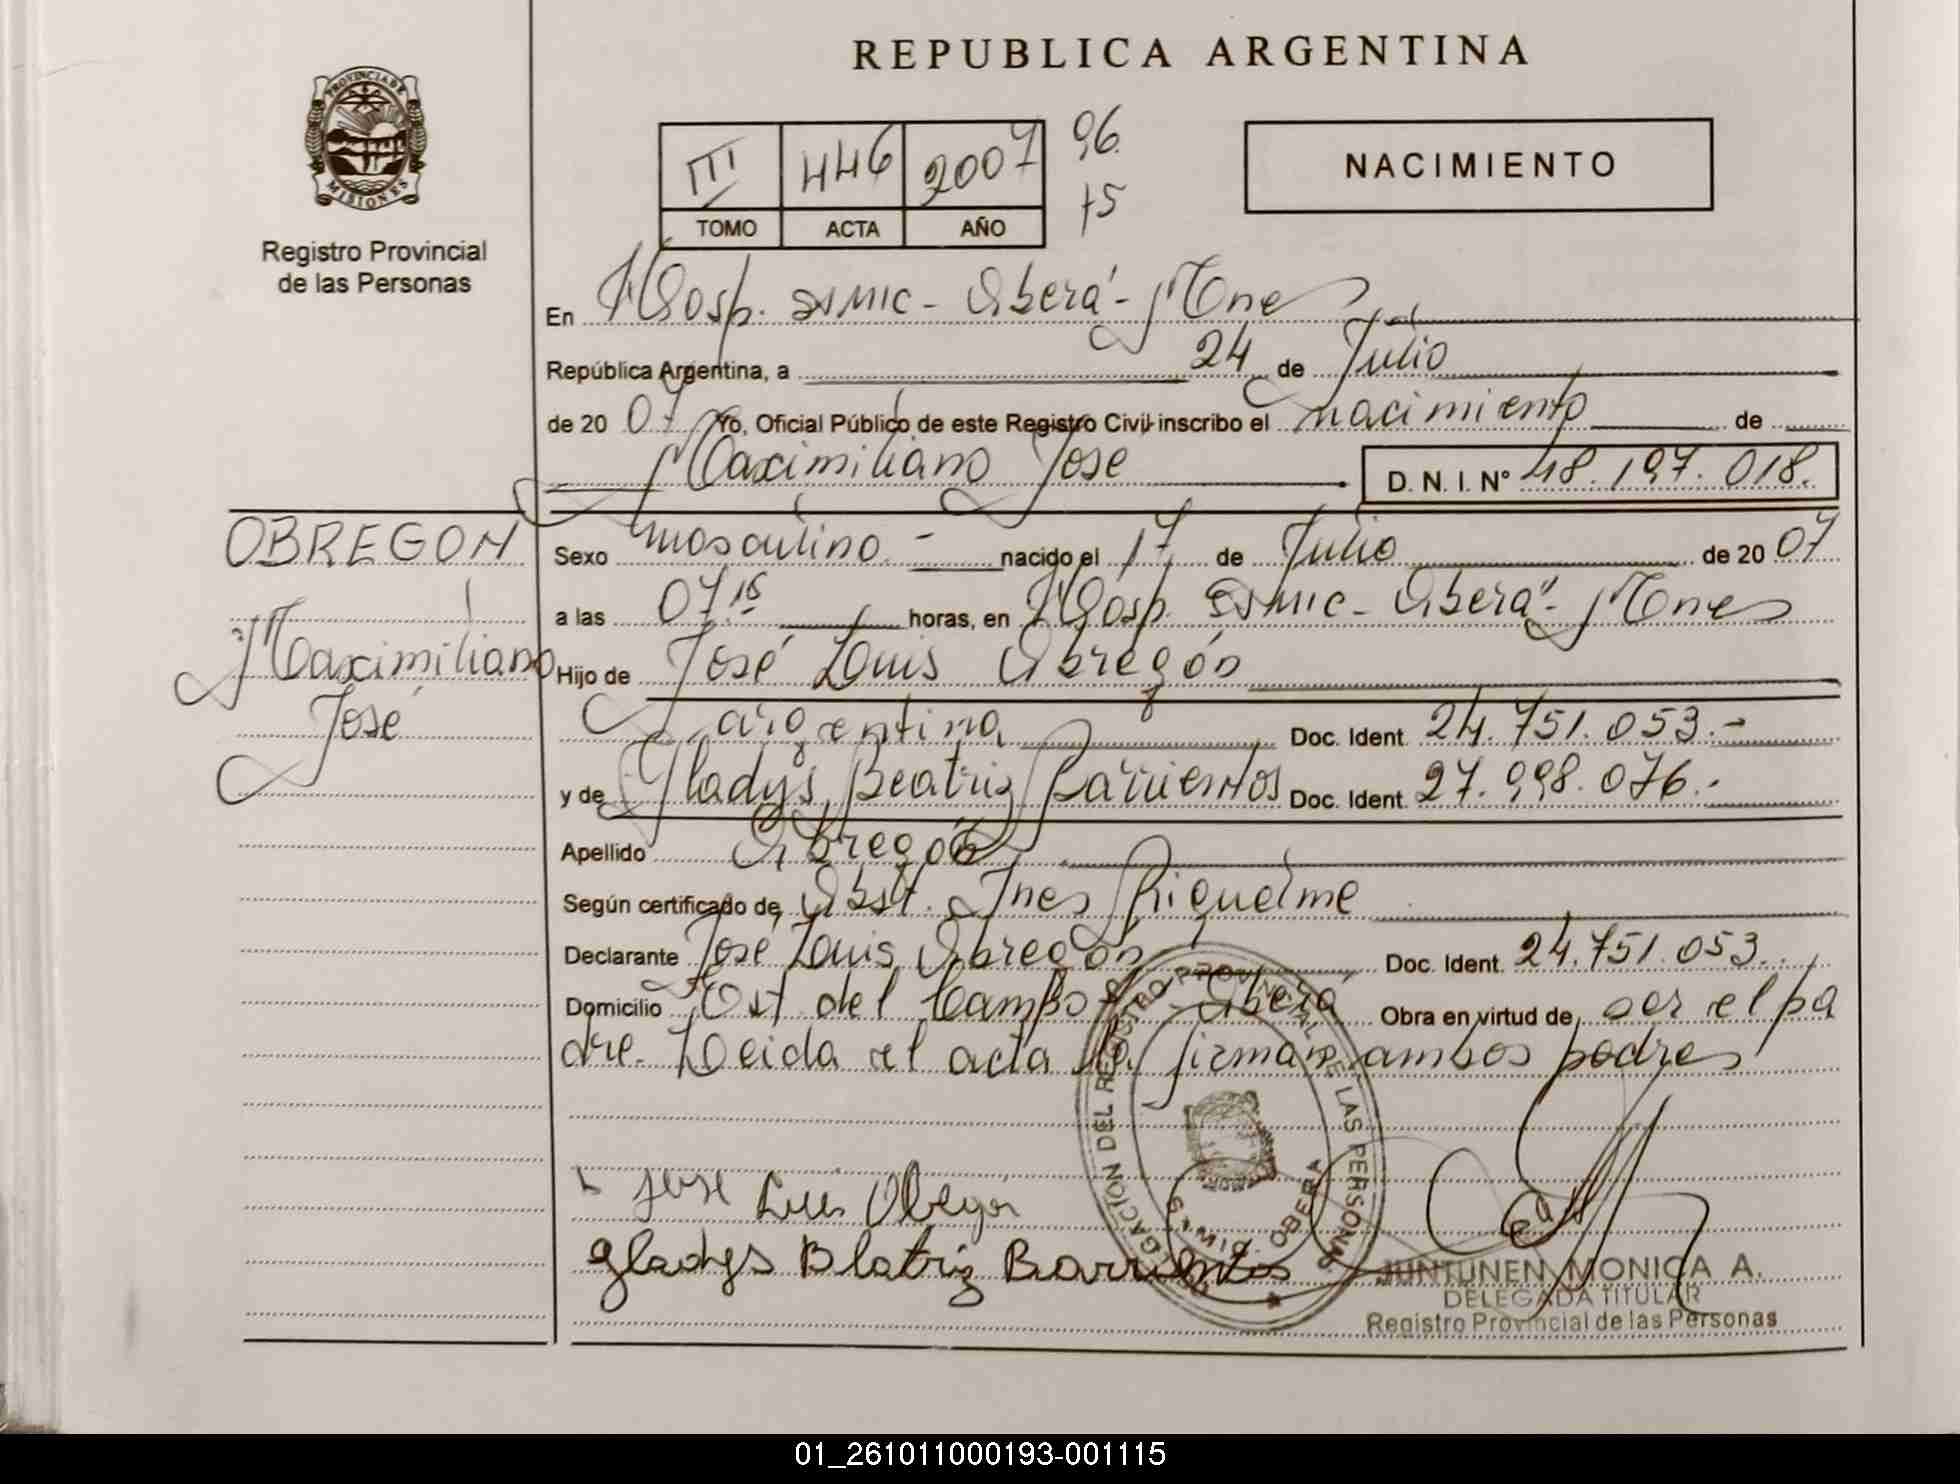 REPUBLICA ARGENTINA
PROVINCIA DE
MISIONES
Registro Provincial
de las Personas
III 446 2007 96.
TOMO ACTA AÑO 75
NACIMIENTO
En Hosp. SAMIC - Oberá - Mnes
República Argentina, a 24 de Julio
de 20 07 Yo, Oficial Público de este Registro Civil inscribo el nacimiento de
Maximiliano José D. N. I. Nº 48.197.018.
OBREGON
Maximiliano
José
Sexo masculino.- nacido el 17 de Julio de 20 07
a las 07 15 horas, en Hosp. SAMIC - Oberá - Mnes
Hijo de José Luis Obregón
argentina Doc. Ident. 24.751.053.-
y de Gladys Beatriz Barrientos Doc. Ident. 27.998.076.-
Apellido Obregón
Según certificado de Obst. Ines Riquelme
Declarante José Luis Obregón Doc. Ident. 24.751.053.
Domicilio Ost. del Campo - Oberá Obra en virtud de ser el pa
dre. Leida el acta la firman ambos padres
José Luis Obregón
Gladys Beatriz Barrientos
DELEGACIÓN DEL REGISTRO PROVINCIAL DE LAS PERSONAS
OBERA
JUNTUNEN MONICA A.
DELEGADA TITULAR
Registro Provincial de las Personas
01_261011000193-001115